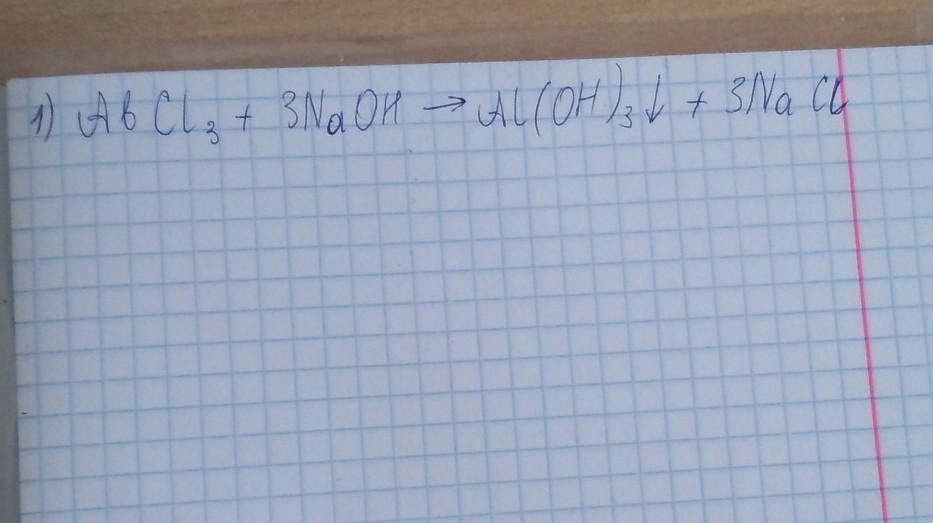 1) AlCl₃ + 3NaOH → Al(OH)₃↓ + 3NaCl